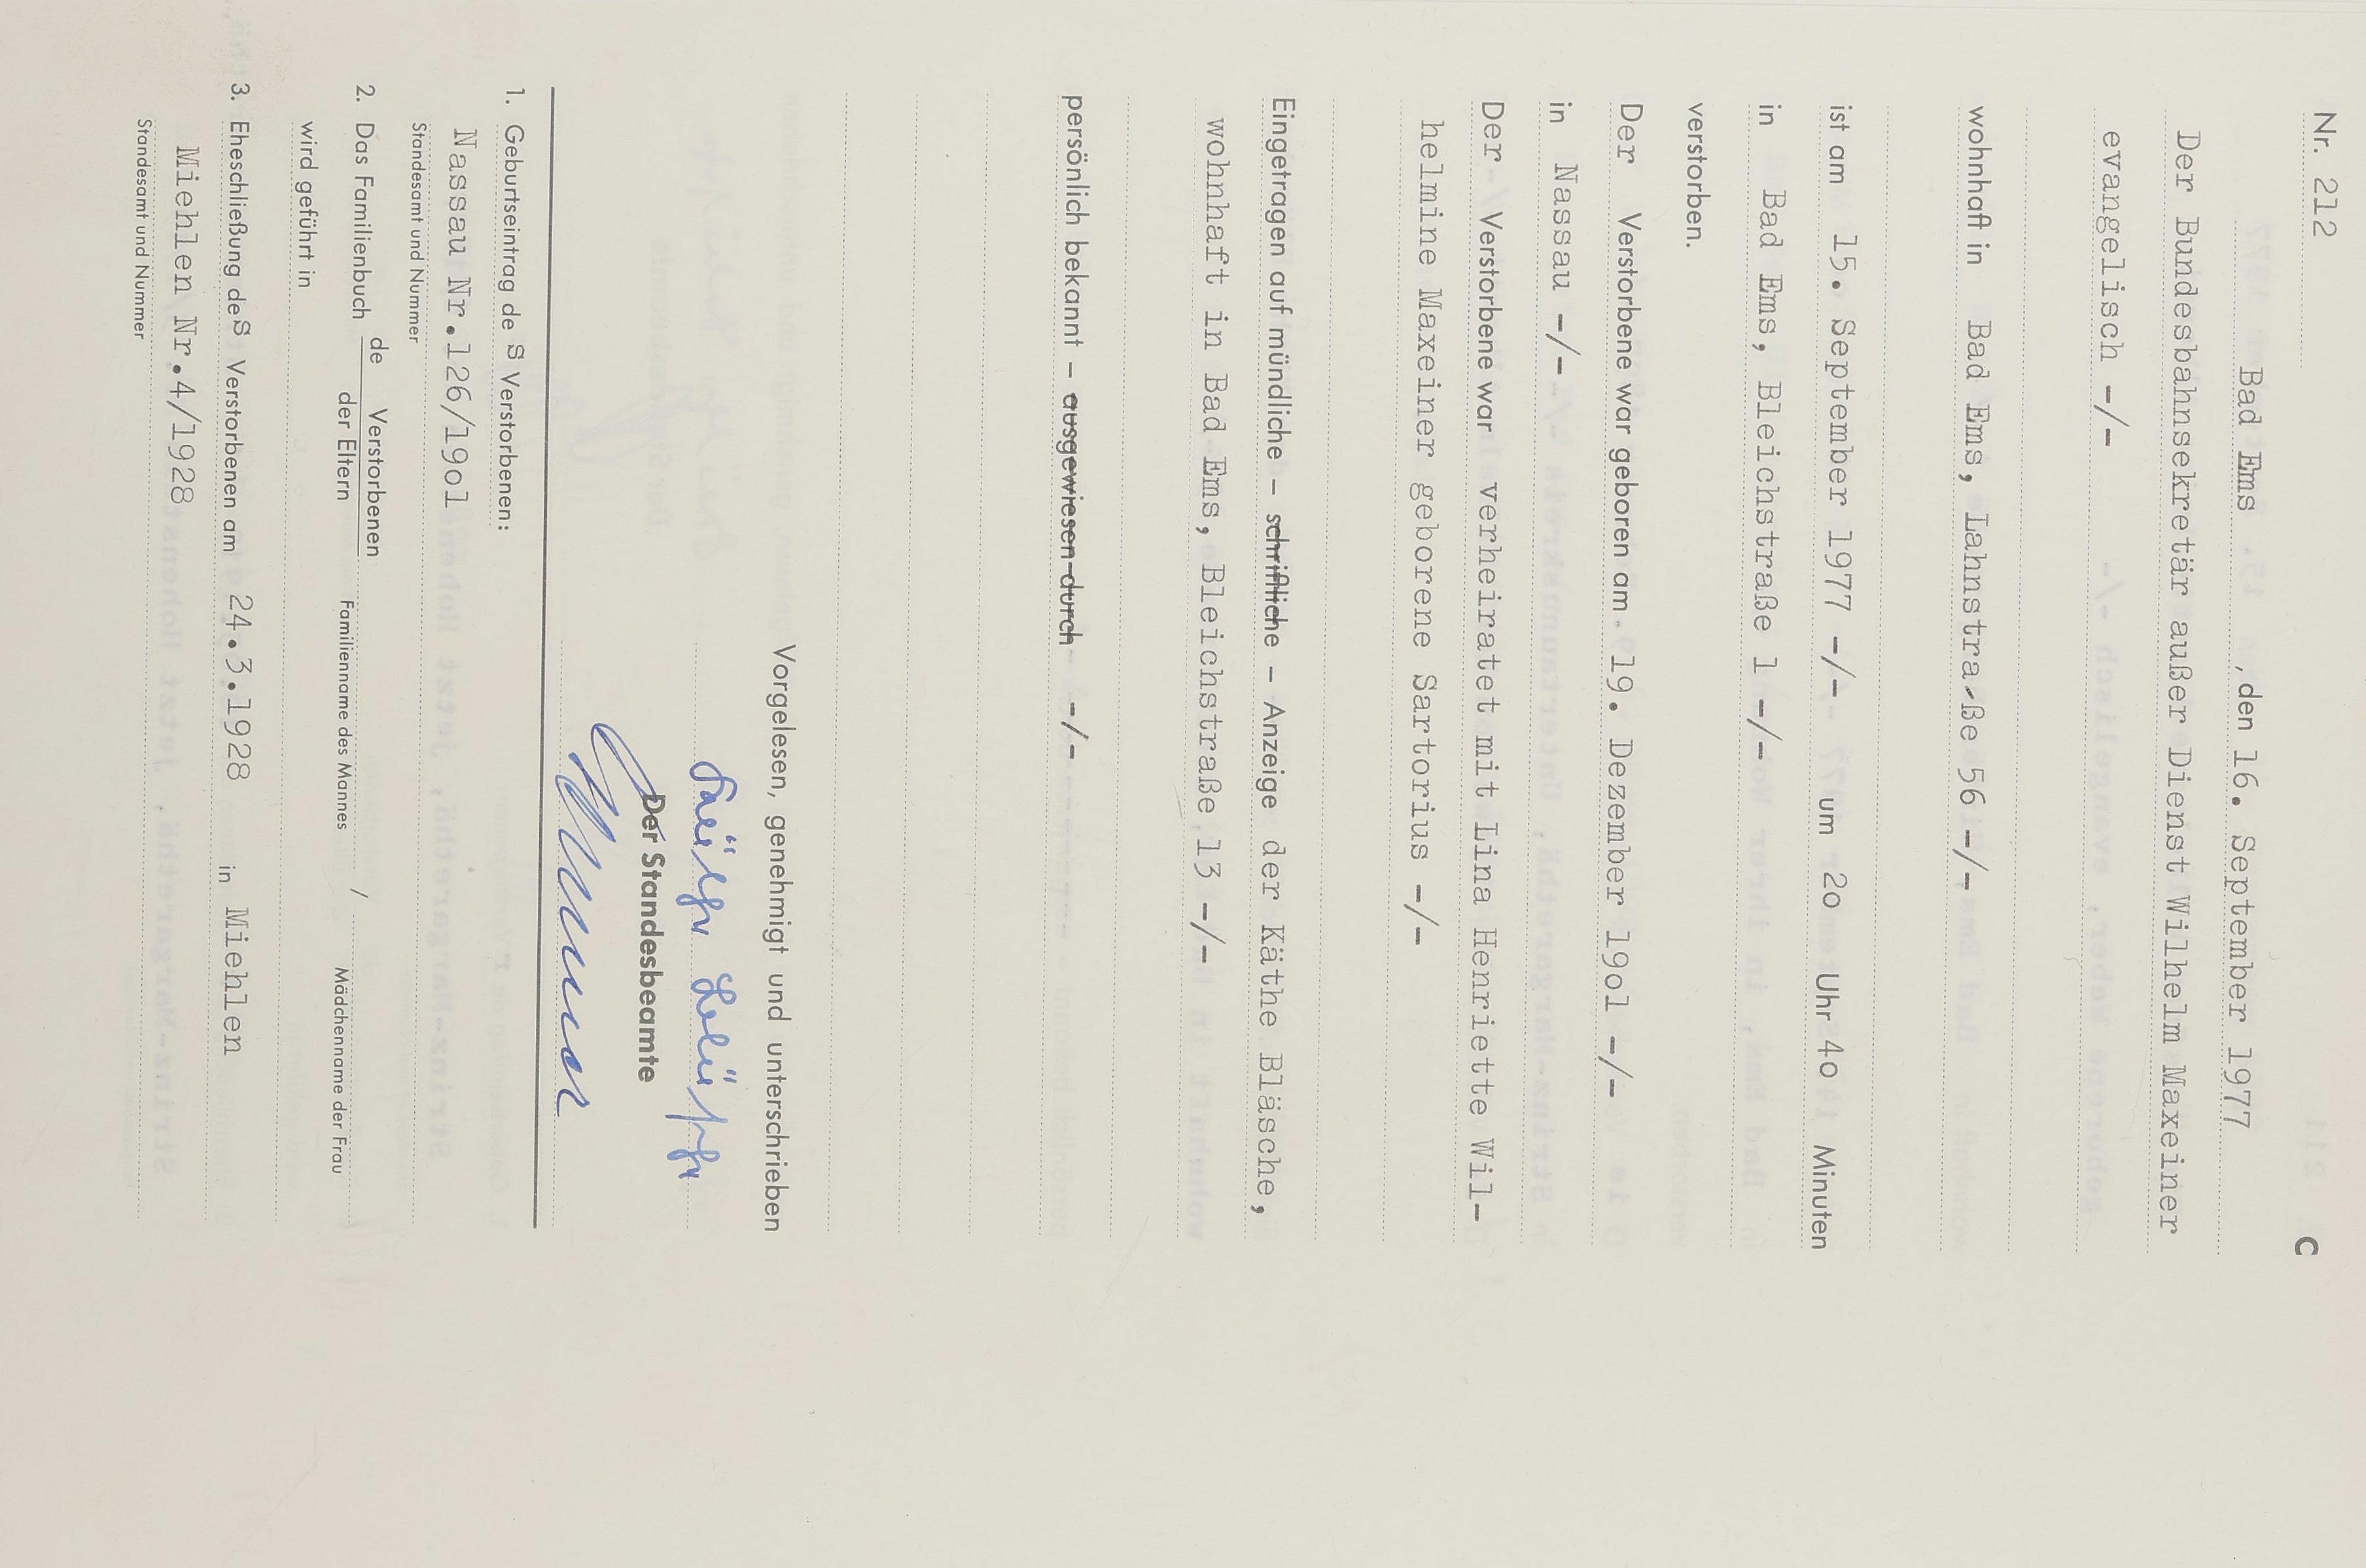 Nr. 212
C
Bad Ems, den 16. September 1977
Der Bundesbahnsekretär außer Dienst Wilhelm Maxeiner
evangelisch -/-
wohnhaft in Bad Ems, Lahnstra-ße 56 -/-
ist am 15. September 1977 -/- um 2o Uhr 4o Minuten
in Bad Ems, Bleichstraße 1 -/-
verstorben.
Der Verstorbene war geboren am 19. Dezember 19o1 -/-
in Nassau -/-
Der Verstorbene war verheiratet mit Lina Henriette Wil-
helmine Maxeiner geborene Sartorius -/-
Eingetragen auf mündliche – schriftliche – Anzeige der Käthe Bläsche,
wohnhaft in Bad Ems, Bleichstraße 13 -/-
persönlich bekannt – ausgewiesen durch -/-
Vorgelesen, genehmigt und unterschrieben
Der Standesbeamte
1. Geburtseintrag des Verstorbenen:
Nassau Nr.126/19o1
Standesamt und Nummer
2. Das Familienbuch de Verstorbenen
der Eltern Familienname des Mannes / Mädchenname der Frau
wird geführt in
3. Eheschließung des Verstorbenen am 24.3.1928 in Miehlen
Miehlen Nr.4/1928
Standesamt und Nummer